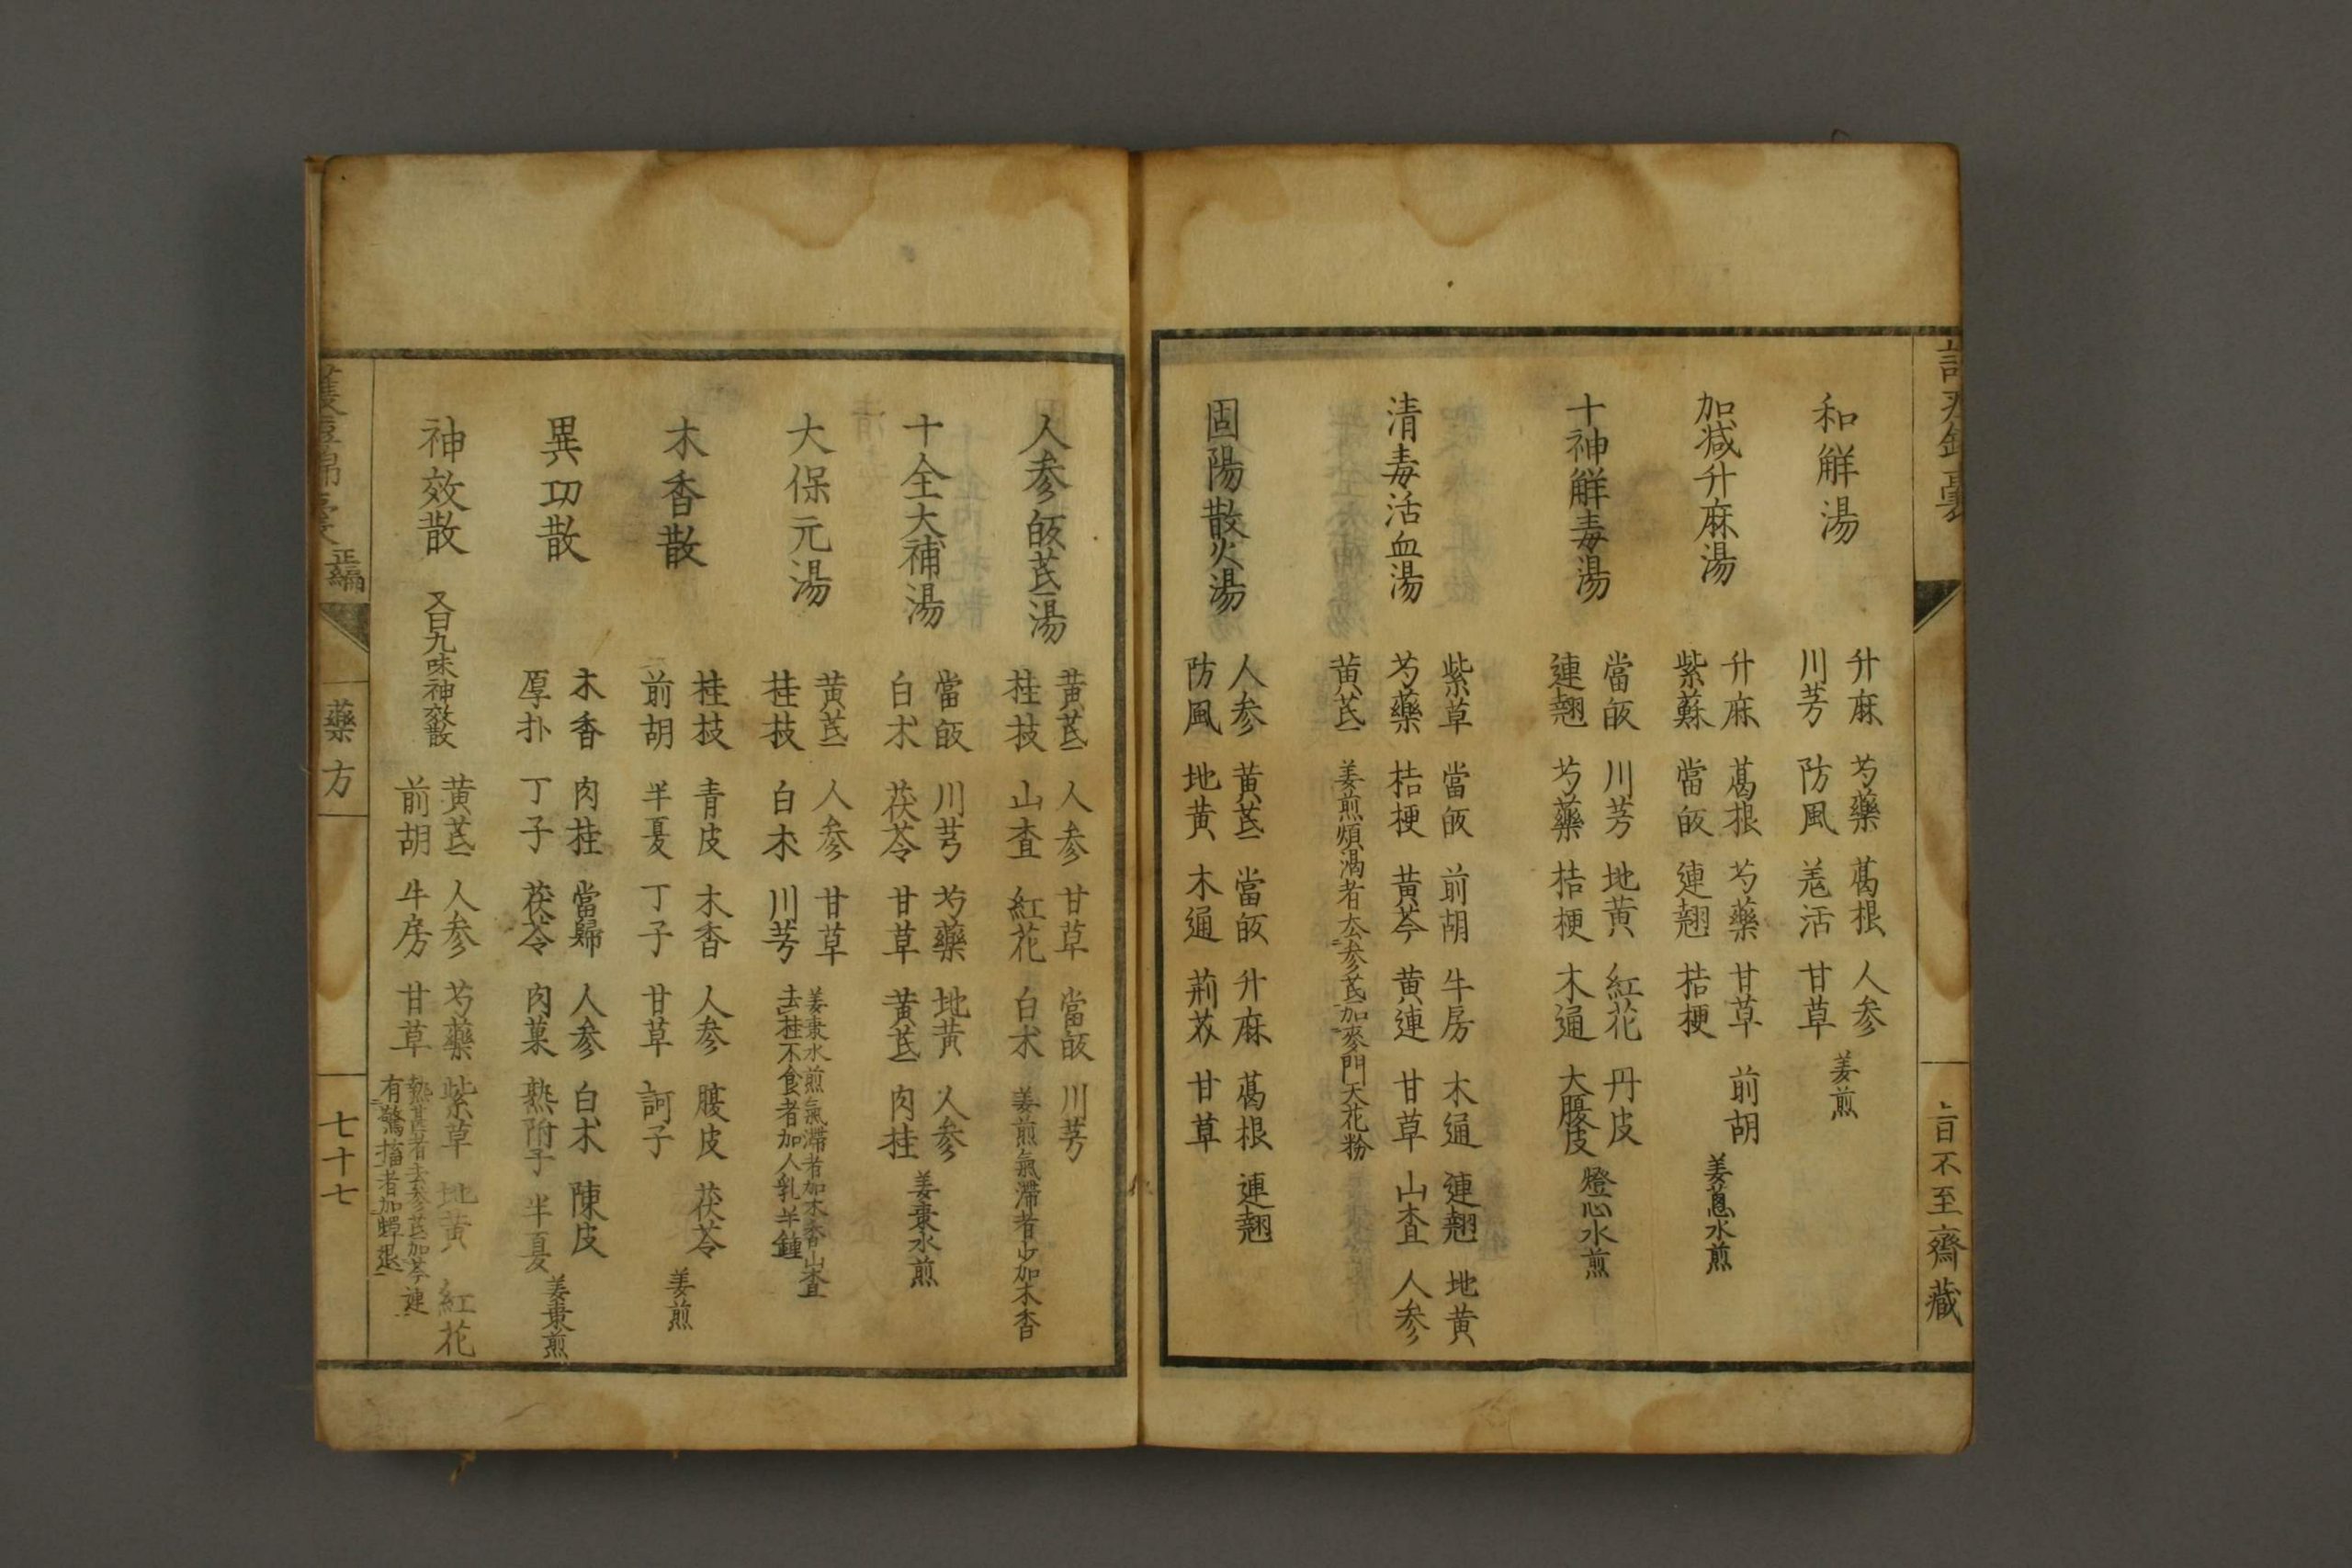 和解湯
升麻 芍藥 葛根 人参
川芎 防風 羗活 甘草
姜煎
加减升麻湯
升麻 葛根 芍藥 甘草 前胡
紫蘇 當皈 連翹 桔梗
姜葱水煎
十神觧毒湯
當皈 川芎 地黄 紅花 丹皮
連翹 芍藥 桔梗 木通 大腹皮
燈心水煎
清毒活血湯
紫草 當皈 前胡 牛房 木通 連翹 地黄
芍藥 桔梗 黄芩 黄連 甘草 山査 人参
黄芪
姜煎煩渴者去参芪加麥門天花粉
固陽散火湯
人参 黄芪 當皈 升麻 葛根 連翹
防風 地黄 木通 荊芥 甘草
不至齋藏
人参皈芪湯
黄芪 人参 甘草 當皈 川芎
桂技 山査 紅花 白朮
姜煎氣滞者少加木香
十全大補湯
當皈 川芎 芍藥 地黄 人参
白朮 茯苓 甘草 黄芪 肉桂
姜棗水煎
大保元湯
黄芪 人参 甘草
桂技 白朮 川芎
姜棗水煎氣滞者加木香山査
去桂不食者加人乳半鍾
木香散
桂技 青皮 木香 人参 腹皮 茯苓
前胡 半夏 丁子 甘草 訶子
姜煎
異功散
木香 肉桂 當歸 人参 白朮 陳皮
厚朴 丁子 茯苓 肉菓 熟附子 半夏
姜棗煎
神效散
又曰九味神效散
黄芪 人参 芍藥 紫草 地黄 紅花
前胡 牛房 甘草
熱甚者去参芪加芩連
有驚搐者加蟬退
正編
藥方
七十七